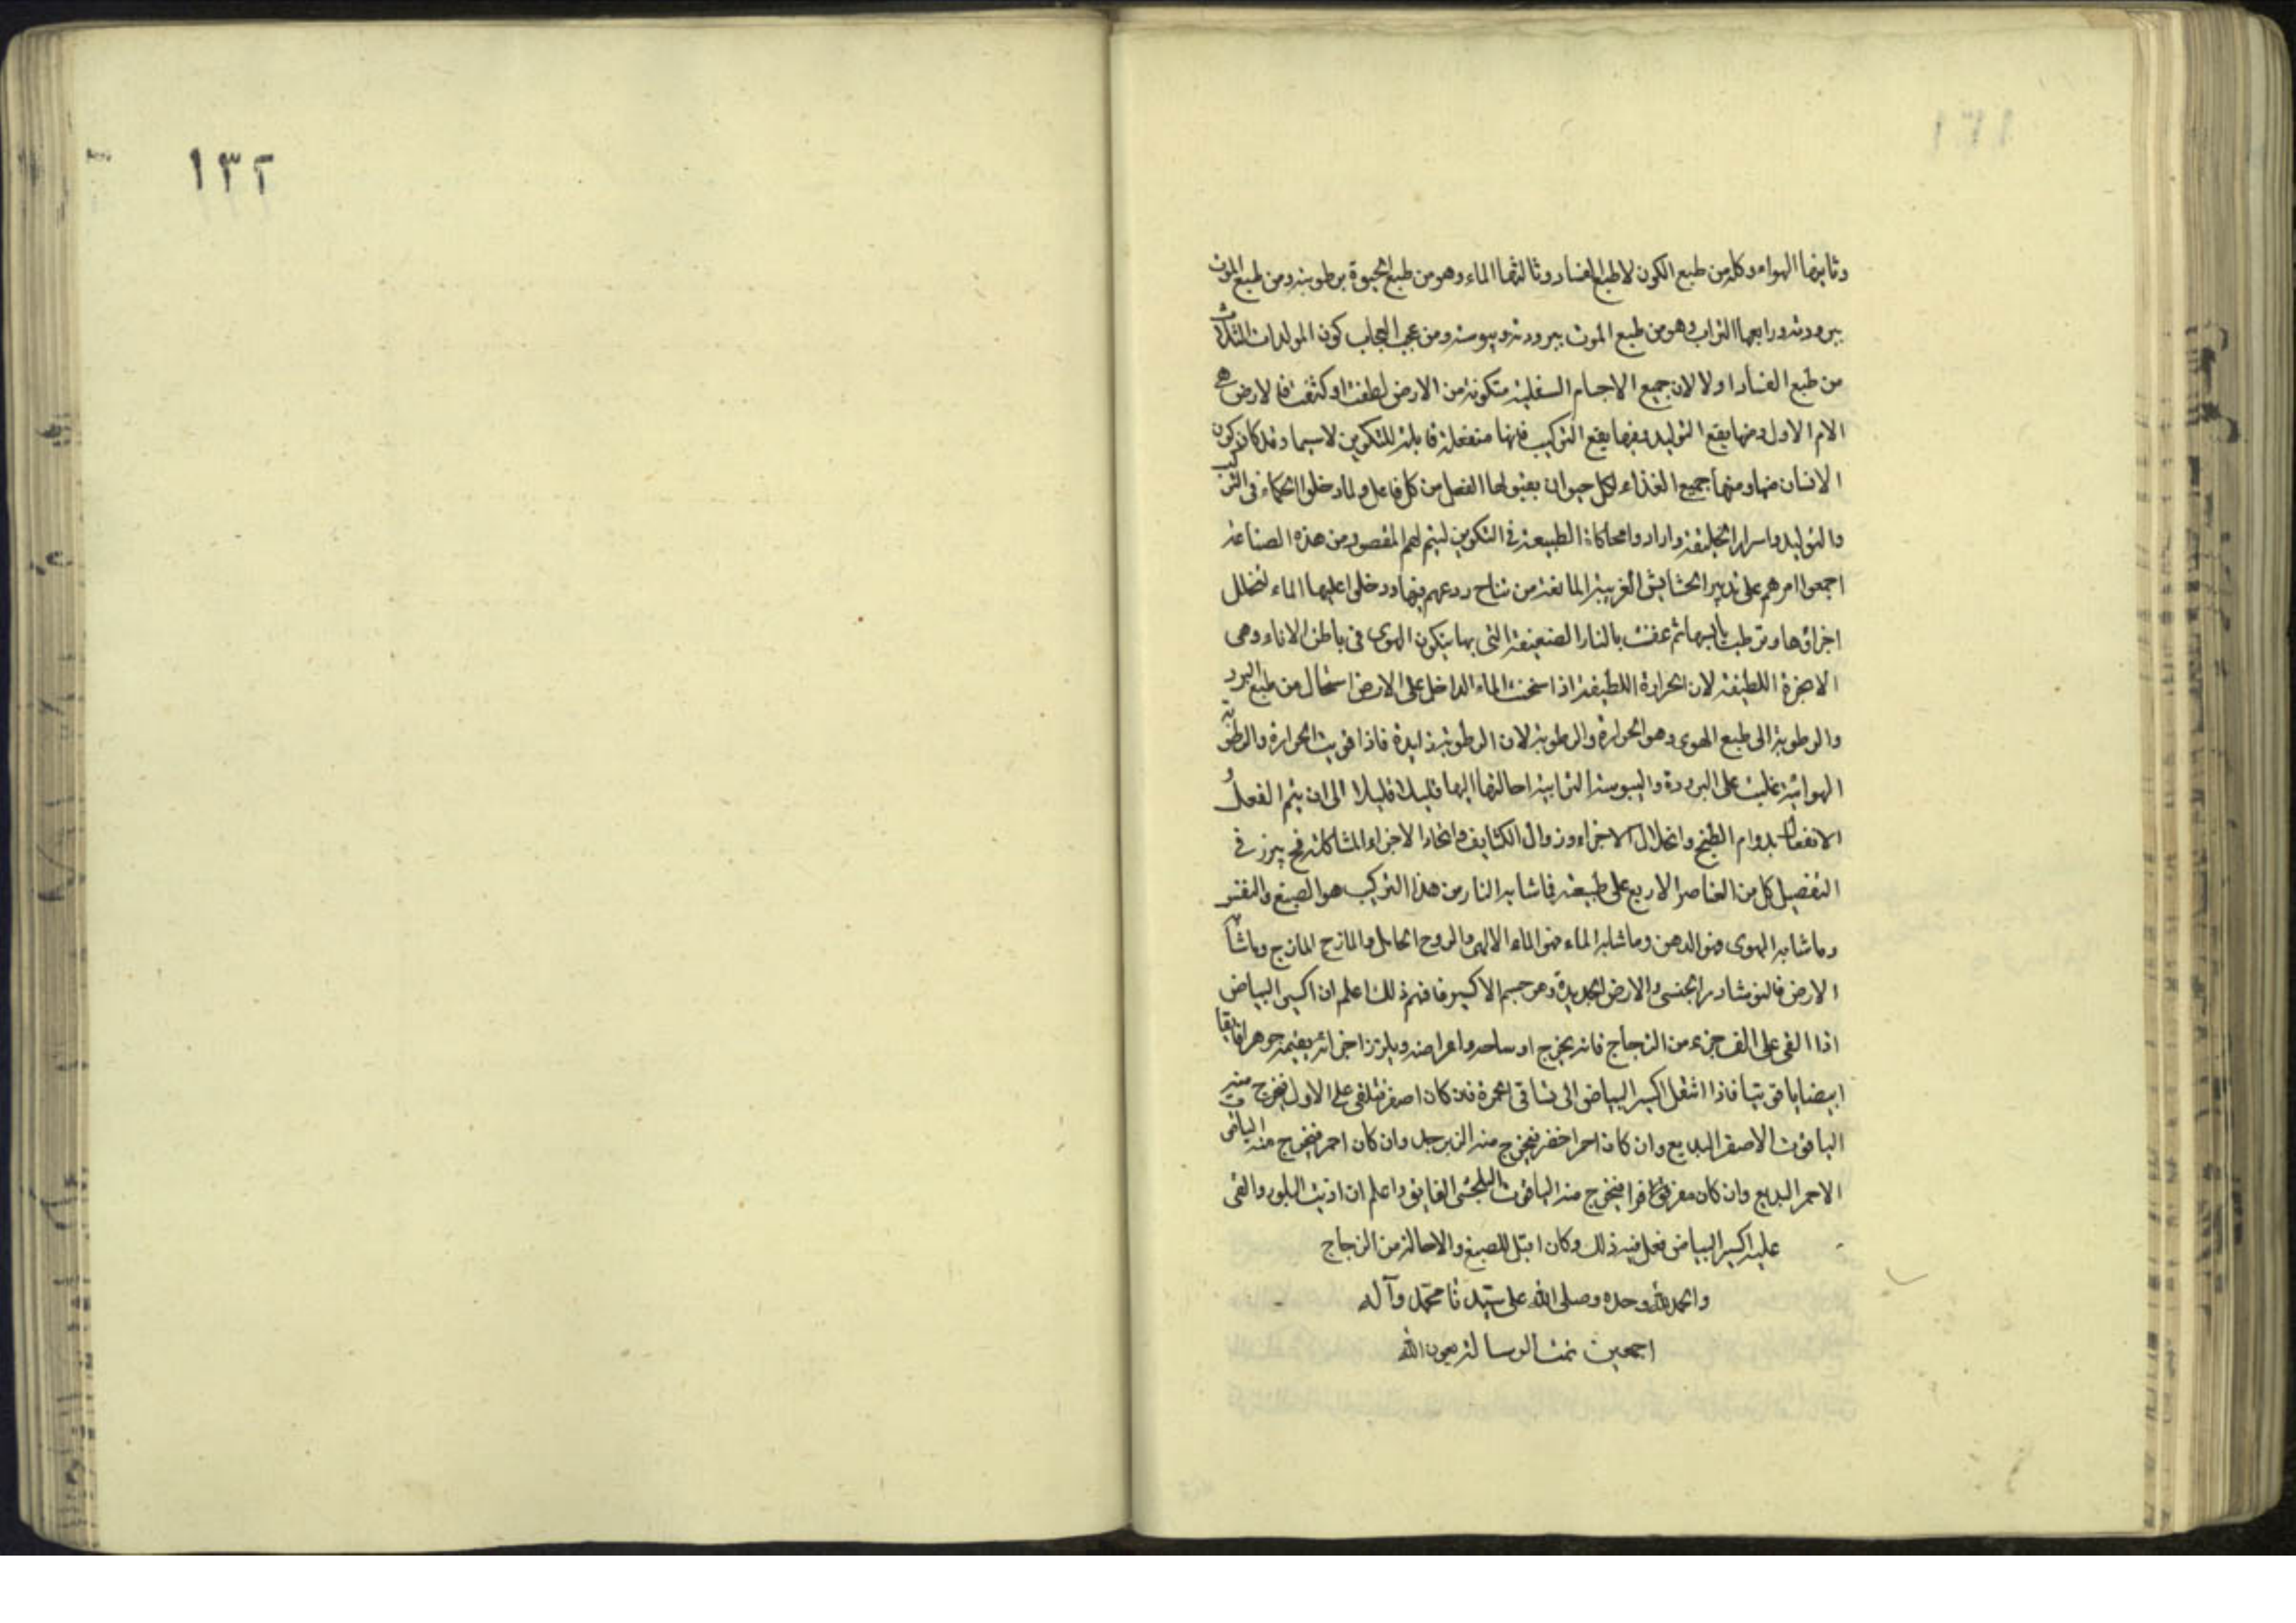 وثانيها الهواء وكله من طبع الكون لا طبع الفساد وثالثها الماء وهو من طبع الحيوة برطوبته ومن طبع الموت
ببرودته ورابعها التراب وهو من طبع الموت ببرودته ويبوسته ومن عجب العجاب كون المولدات الثلاث
من طبع الفساد اولا لان جميع الاجسام السفلية متكونة من الارض لطفت او كثفت فالارض هي
الام الاول ومنها يقع التوليد وفيها يقع التركيب فانها منفعلة قابلة للتكوين لا سيما وقد كان كون
الانسان منها ومنها جميع الغذاء لكل حيوان بقبولها الفعل من كل فاعل ولما دخلوا الحكماء في التركيب
والتوليد واسرار الخليقة وارادوا محاكاة الطبيعة في التكوين ليتم لهم المقصود من هذه الصناعة
اجمعوا امرهم على تدبير الحشايش الغريبة المانعة من نتاح زرعهم فيها ودخلوا عليها الماء لتخلل
اجزاؤها وترطب يابسها ثم عفنت بالنار الضعيفة التي بها يتكون الهوى في باطن الاناء وهي
الابخرة اللطيفة لان الحرارة اللطيفة اذا سخنت الماء الداخل على الارض استحال من طبع البرد
والرطوبة الى طبع الهوى وهو الحرارة والرطوبة لان الرطوبة زايدة فاذا قويت الحرارة والرطوبة
الهوائية غلبت على البرودة واليبوسة الترابية احالتها اليها قليلا قليلا الى ان يتم الفعل و
الانفعال بدوام الطبخ وانحلال الاجزاء وزوال الكثايف واتحاد الاجزاء المشاكلة فح يبرز في
التفصيل كل من العناصر الاربع على طبيعته فما شابه النار من هذا التركيب هو الصبغ والنفس
وما شابه الهوى فهو الدهن وما شابه الماء فهو الماء الالهي والروح الحامل والمازج المازج وما شابه
الارض فالنوشادر الجنسى والارض الجديدة وهو جسم الاكسير فافهم ذلك اعلم ان اكسير البياض
اذا القى على الف جزء من الزجاج فانه يخرج اوساخه واعراضه ويلزز اجزائه يقيمه جوهرا فايقا
ابيضا ياقوتيا فاذا انتقل اكسير البياض الى تساقى الحمرة فان كان اصفر فتلقى على الاول فيخرج منه
الياقوت الاصفر البديع وان كان احمر اخضر فيخرج منه الزبرجد وان كان احمر فيخرج منه الياقوت
الاحمر البديع وان كان فيخرج منه الياقوت البلخشى الفايق واعلم ان اذيب البلور والقى
عليه اكسير البياض فعل فيه ذلك وكان اقبل للصبغ والاحالة من الزجاج
والحمد لله وحده وصلى الله على سيدنا محمد وآله
اجمعين تمت الرسالة بعون الله
١٣٢